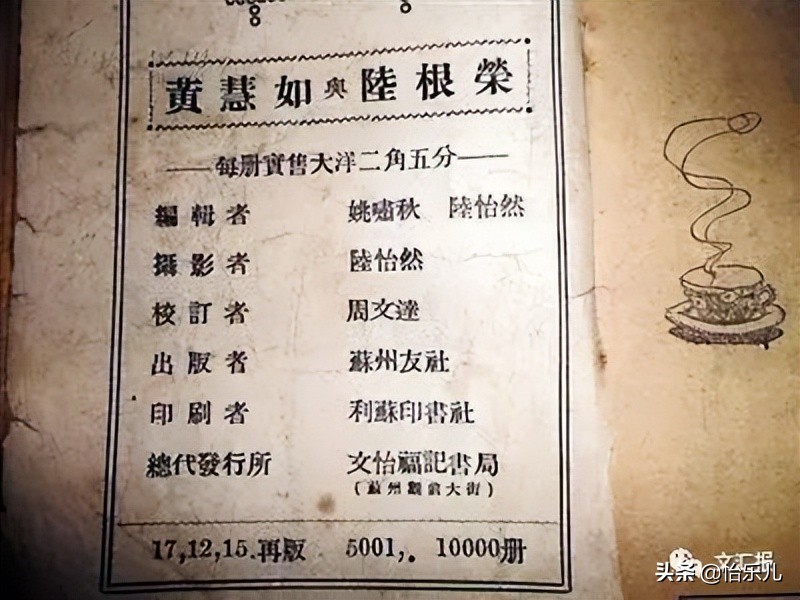 黃慧如與陸根榮
每册實售大洋二角五分
編輯者 姚嘯秋 陸怡然
攝影者 陸怡然
校訂者 周文達
出版者 蘇州友社
印刷者 利蘇印書社
總代發行所 文怡福記書局
(蘇州觀前大街)
17,12,15.再版 5001,. 10000册
文汇报
头条@怡乐儿